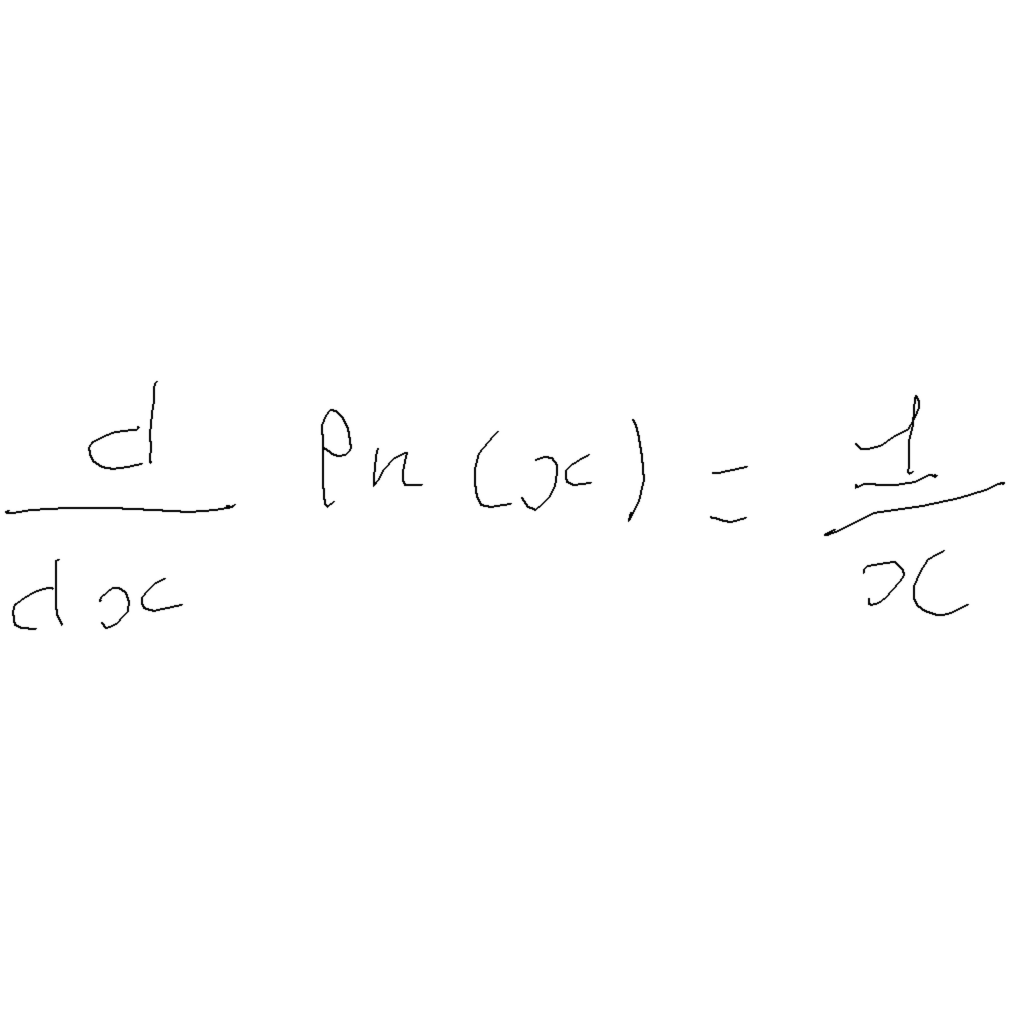 d/dx Pn(x) = 1/x